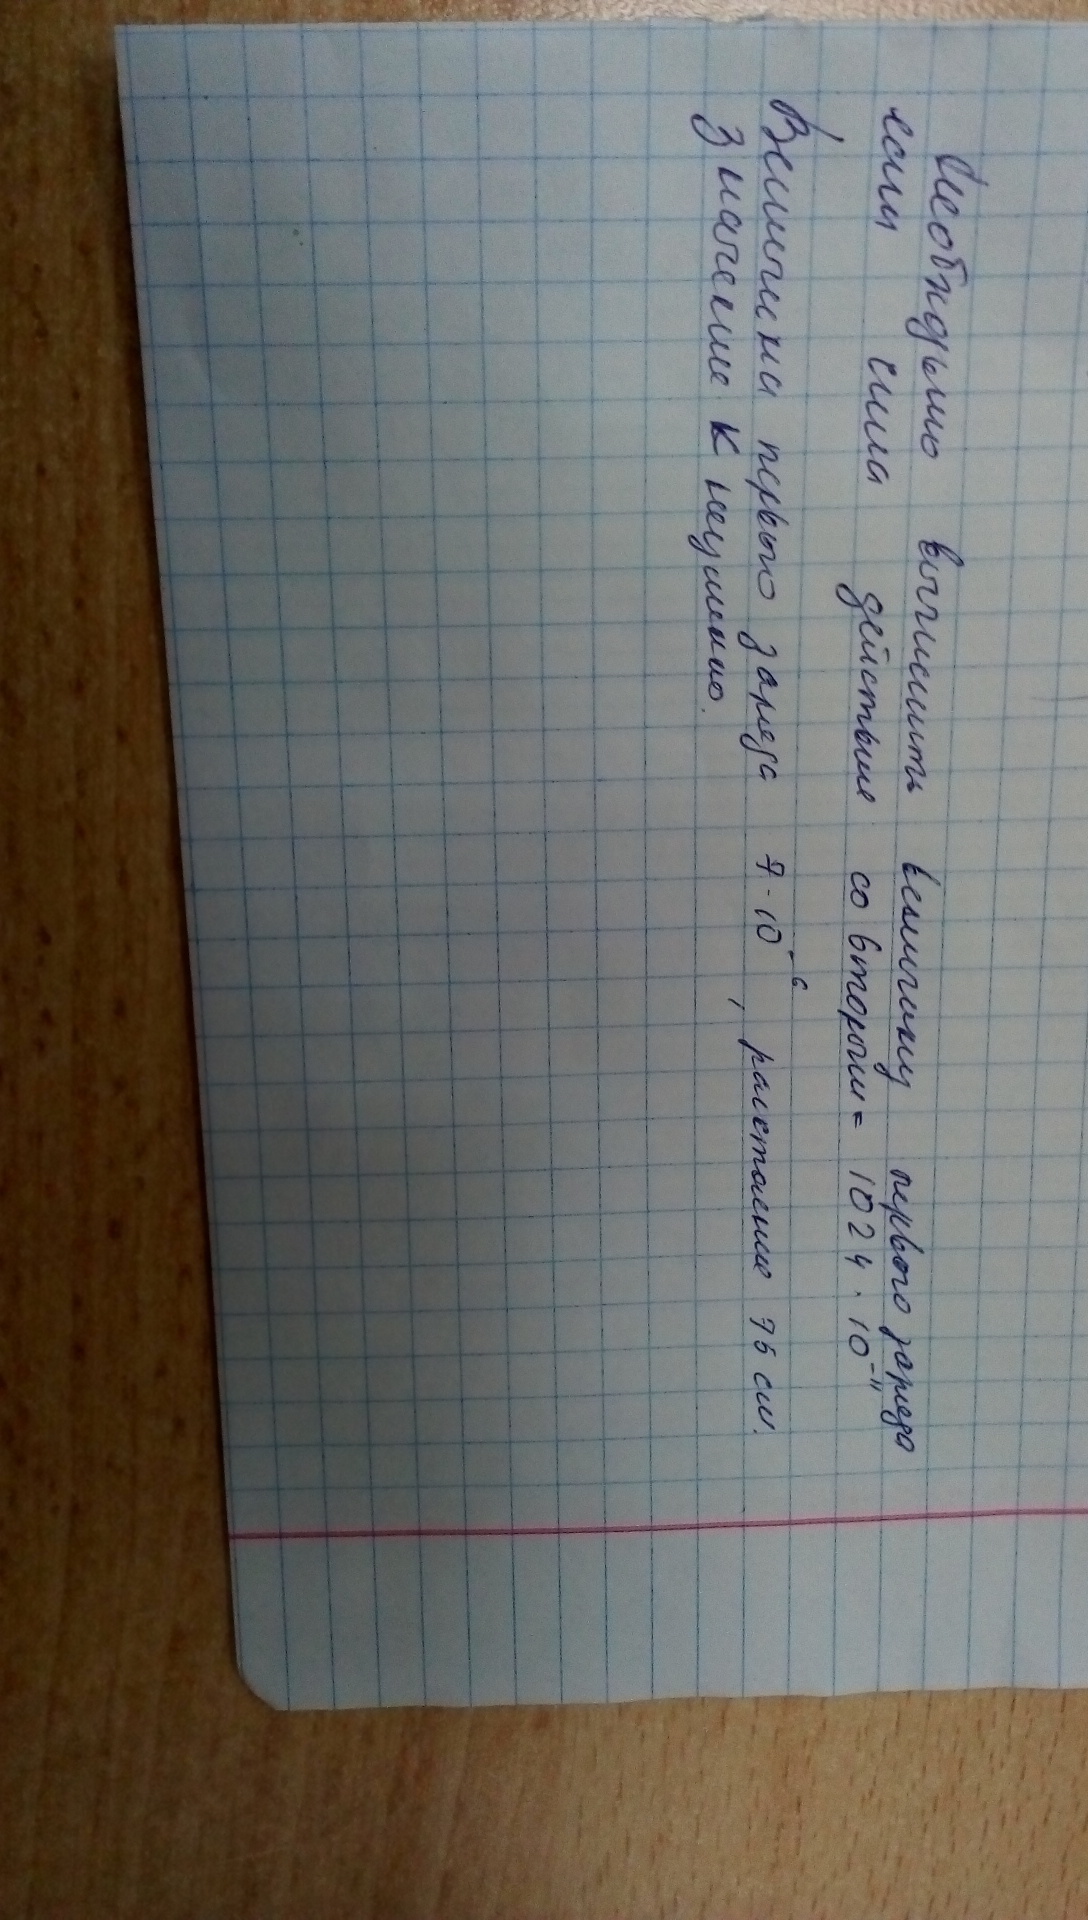 Необходимо вычислить величину первого заряда
если сила действие со вторым = 1024 · 10⁻¹¹
Величина первого заряда 7 · 10⁻⁶, расстояние 75 см.
Значение к неизменно.